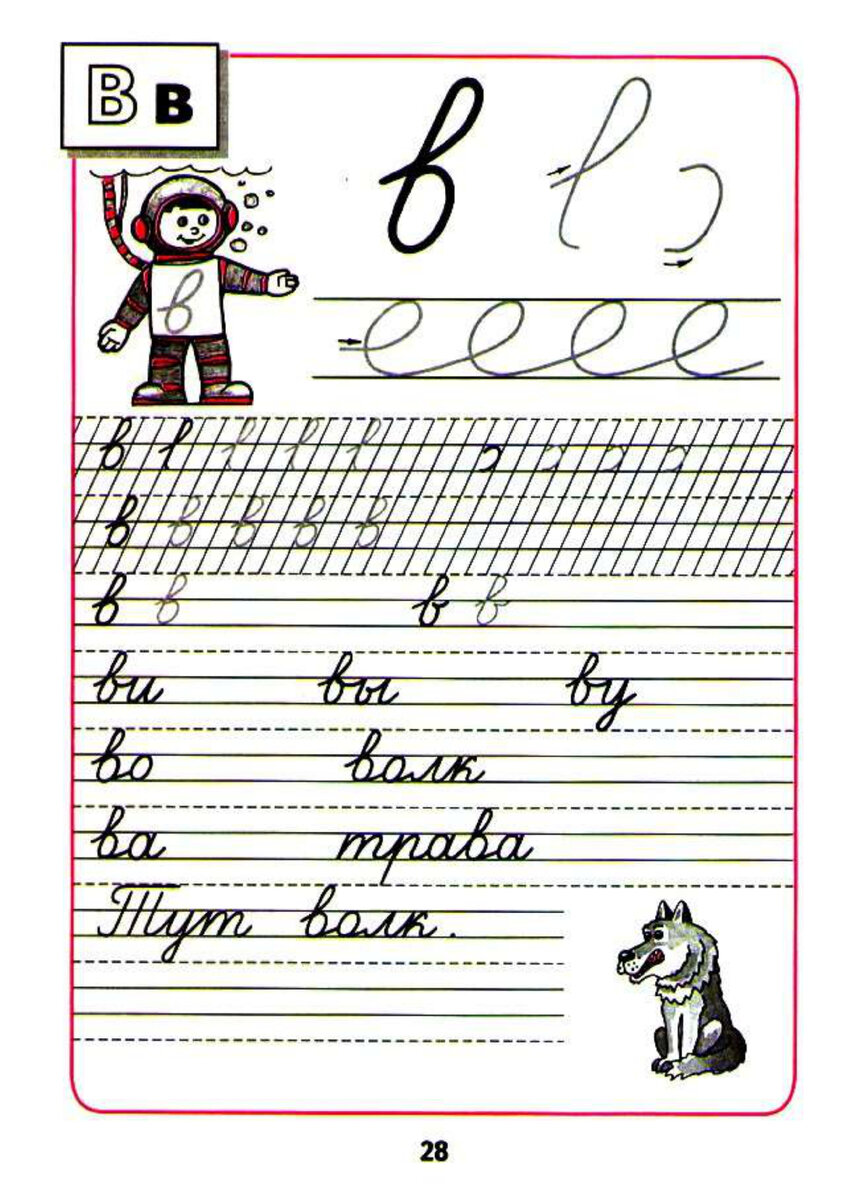 В в
в
в
в в
в
в в в в в
в в в в
ви вы ву
во волк
ва трава
Тут волк.
28